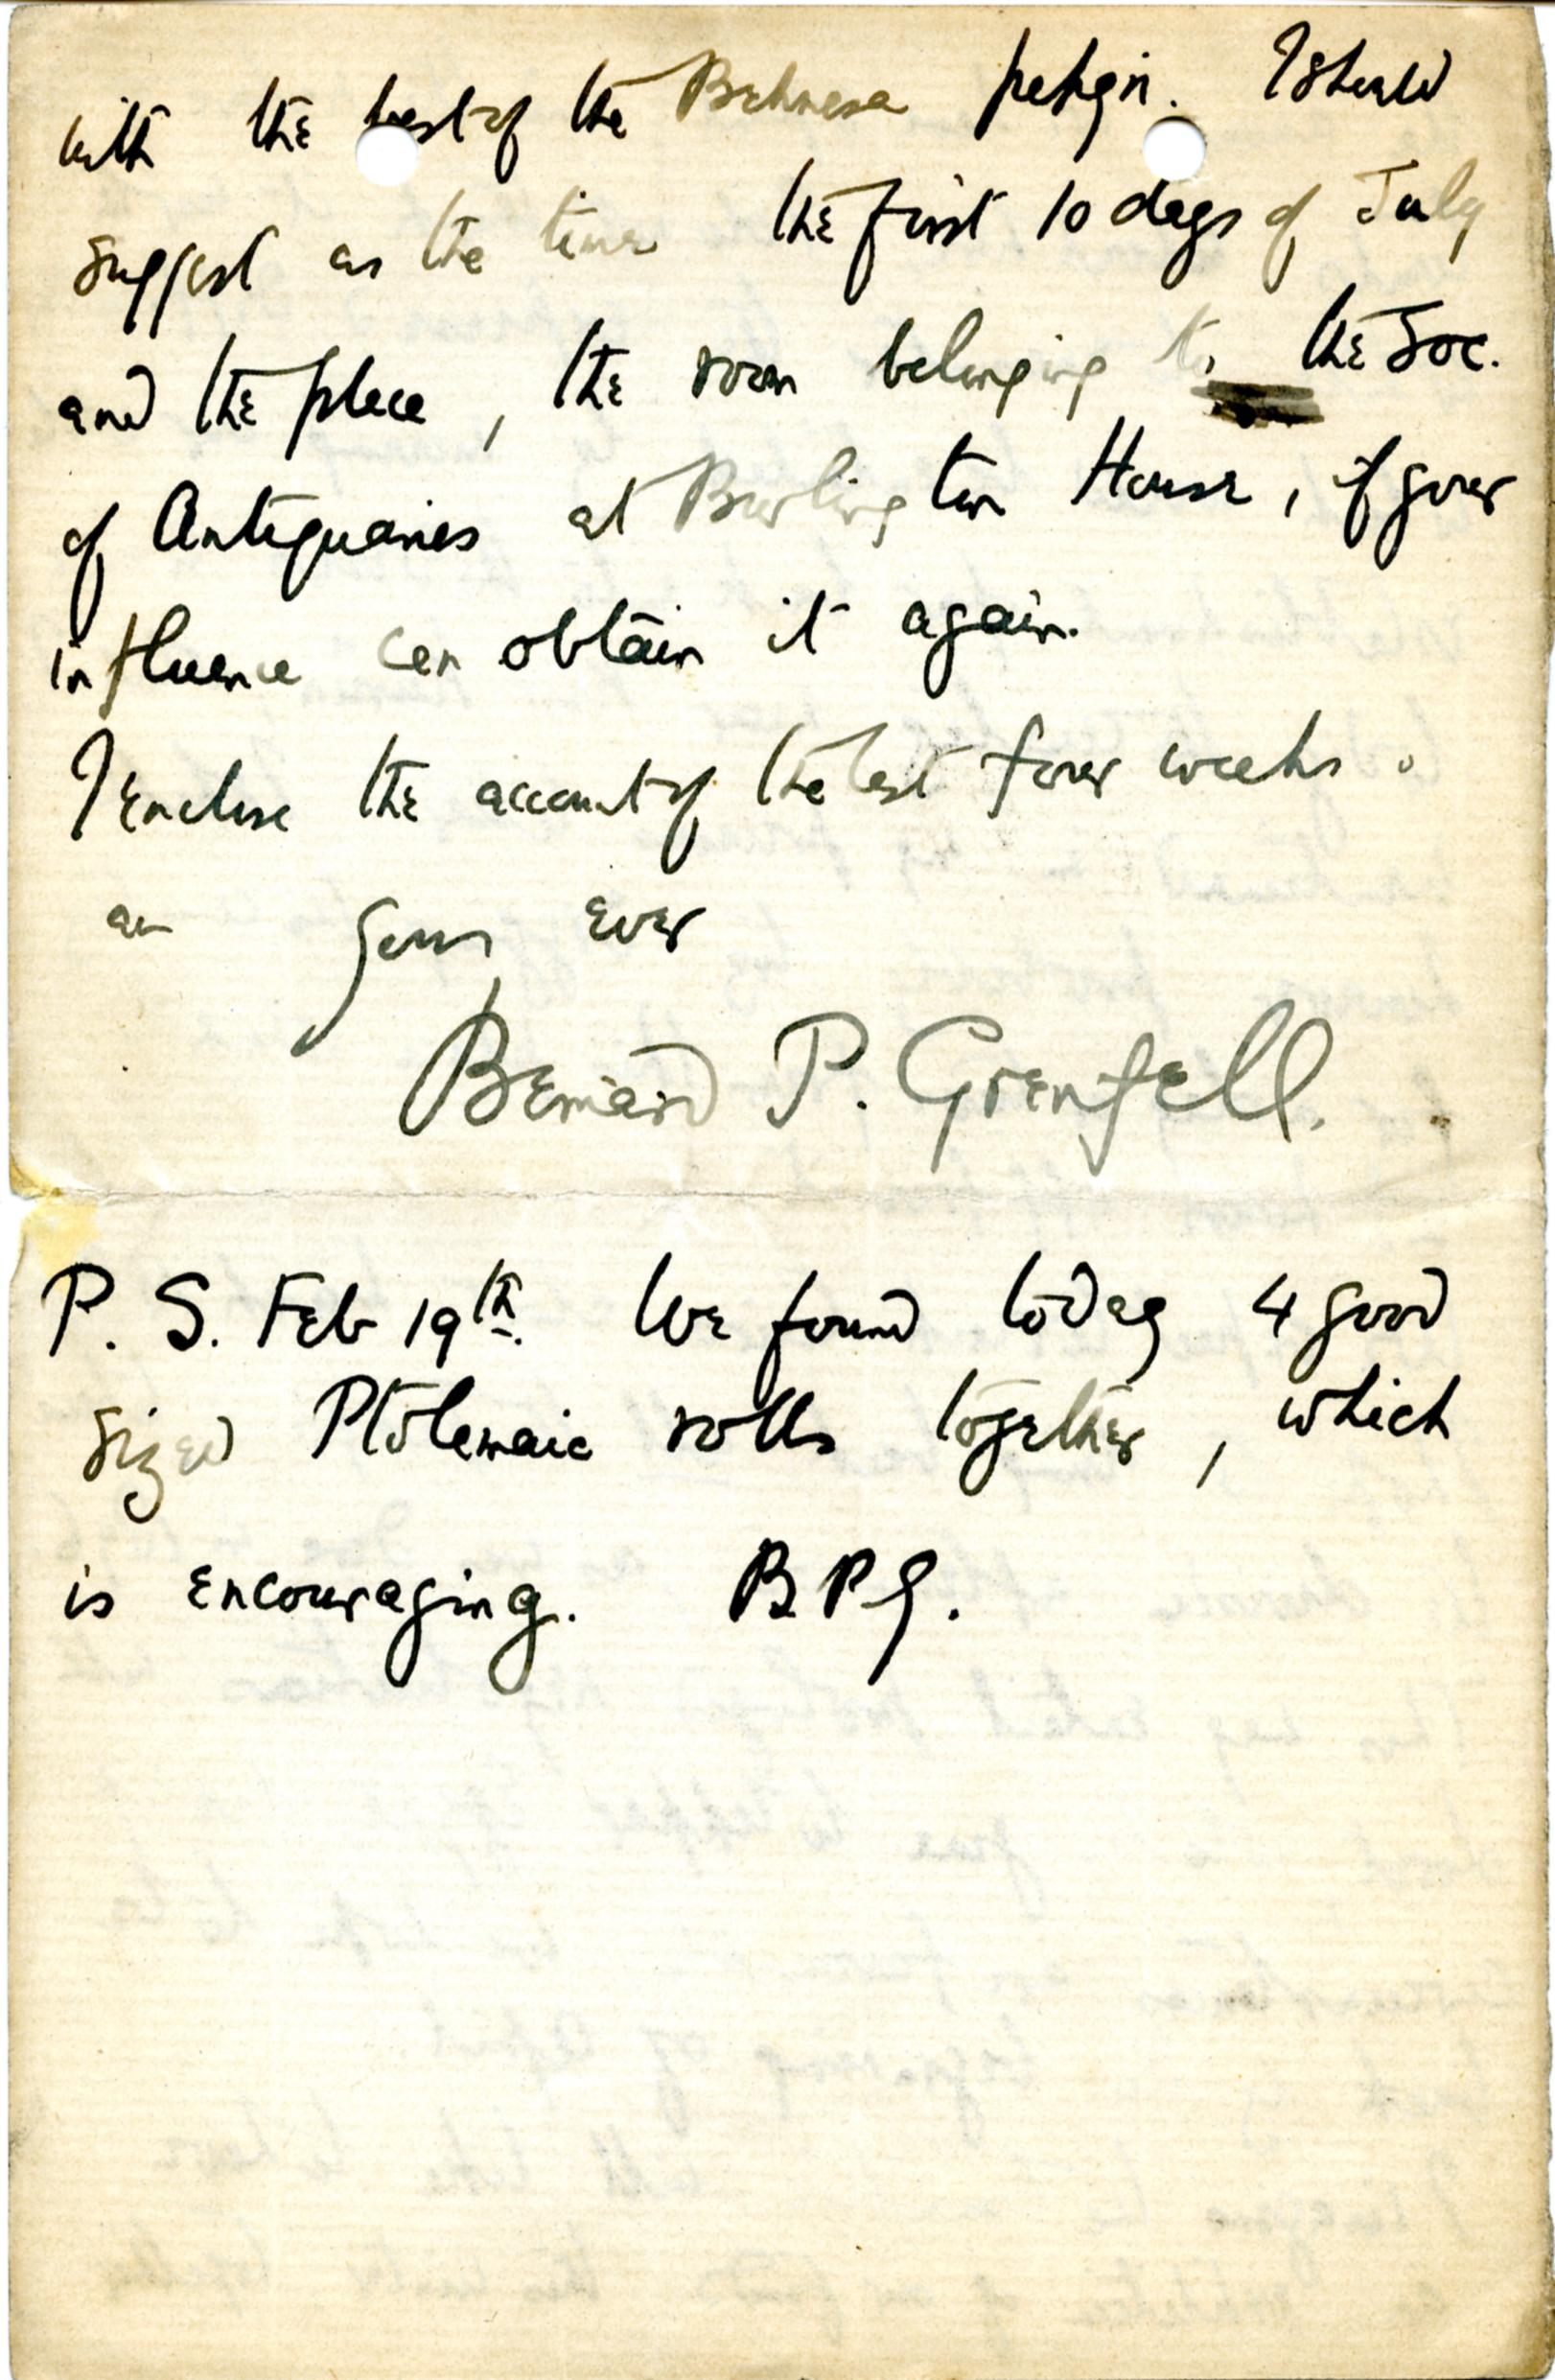 with the best of the Behnesa papyri. I should
suggest as the time the first 10 days of July
and the place, the room belonging to the Soc.
of Antiquaries at Burlington House, if your
influence can obtain it again.
I enclose the account of the last four weeks.
Yours ever
Bernard P. Grenfell.
P. S. Feb 19th. We found today 4 good
sized Ptolemaic rolls together, which
is encouraging. B P G.